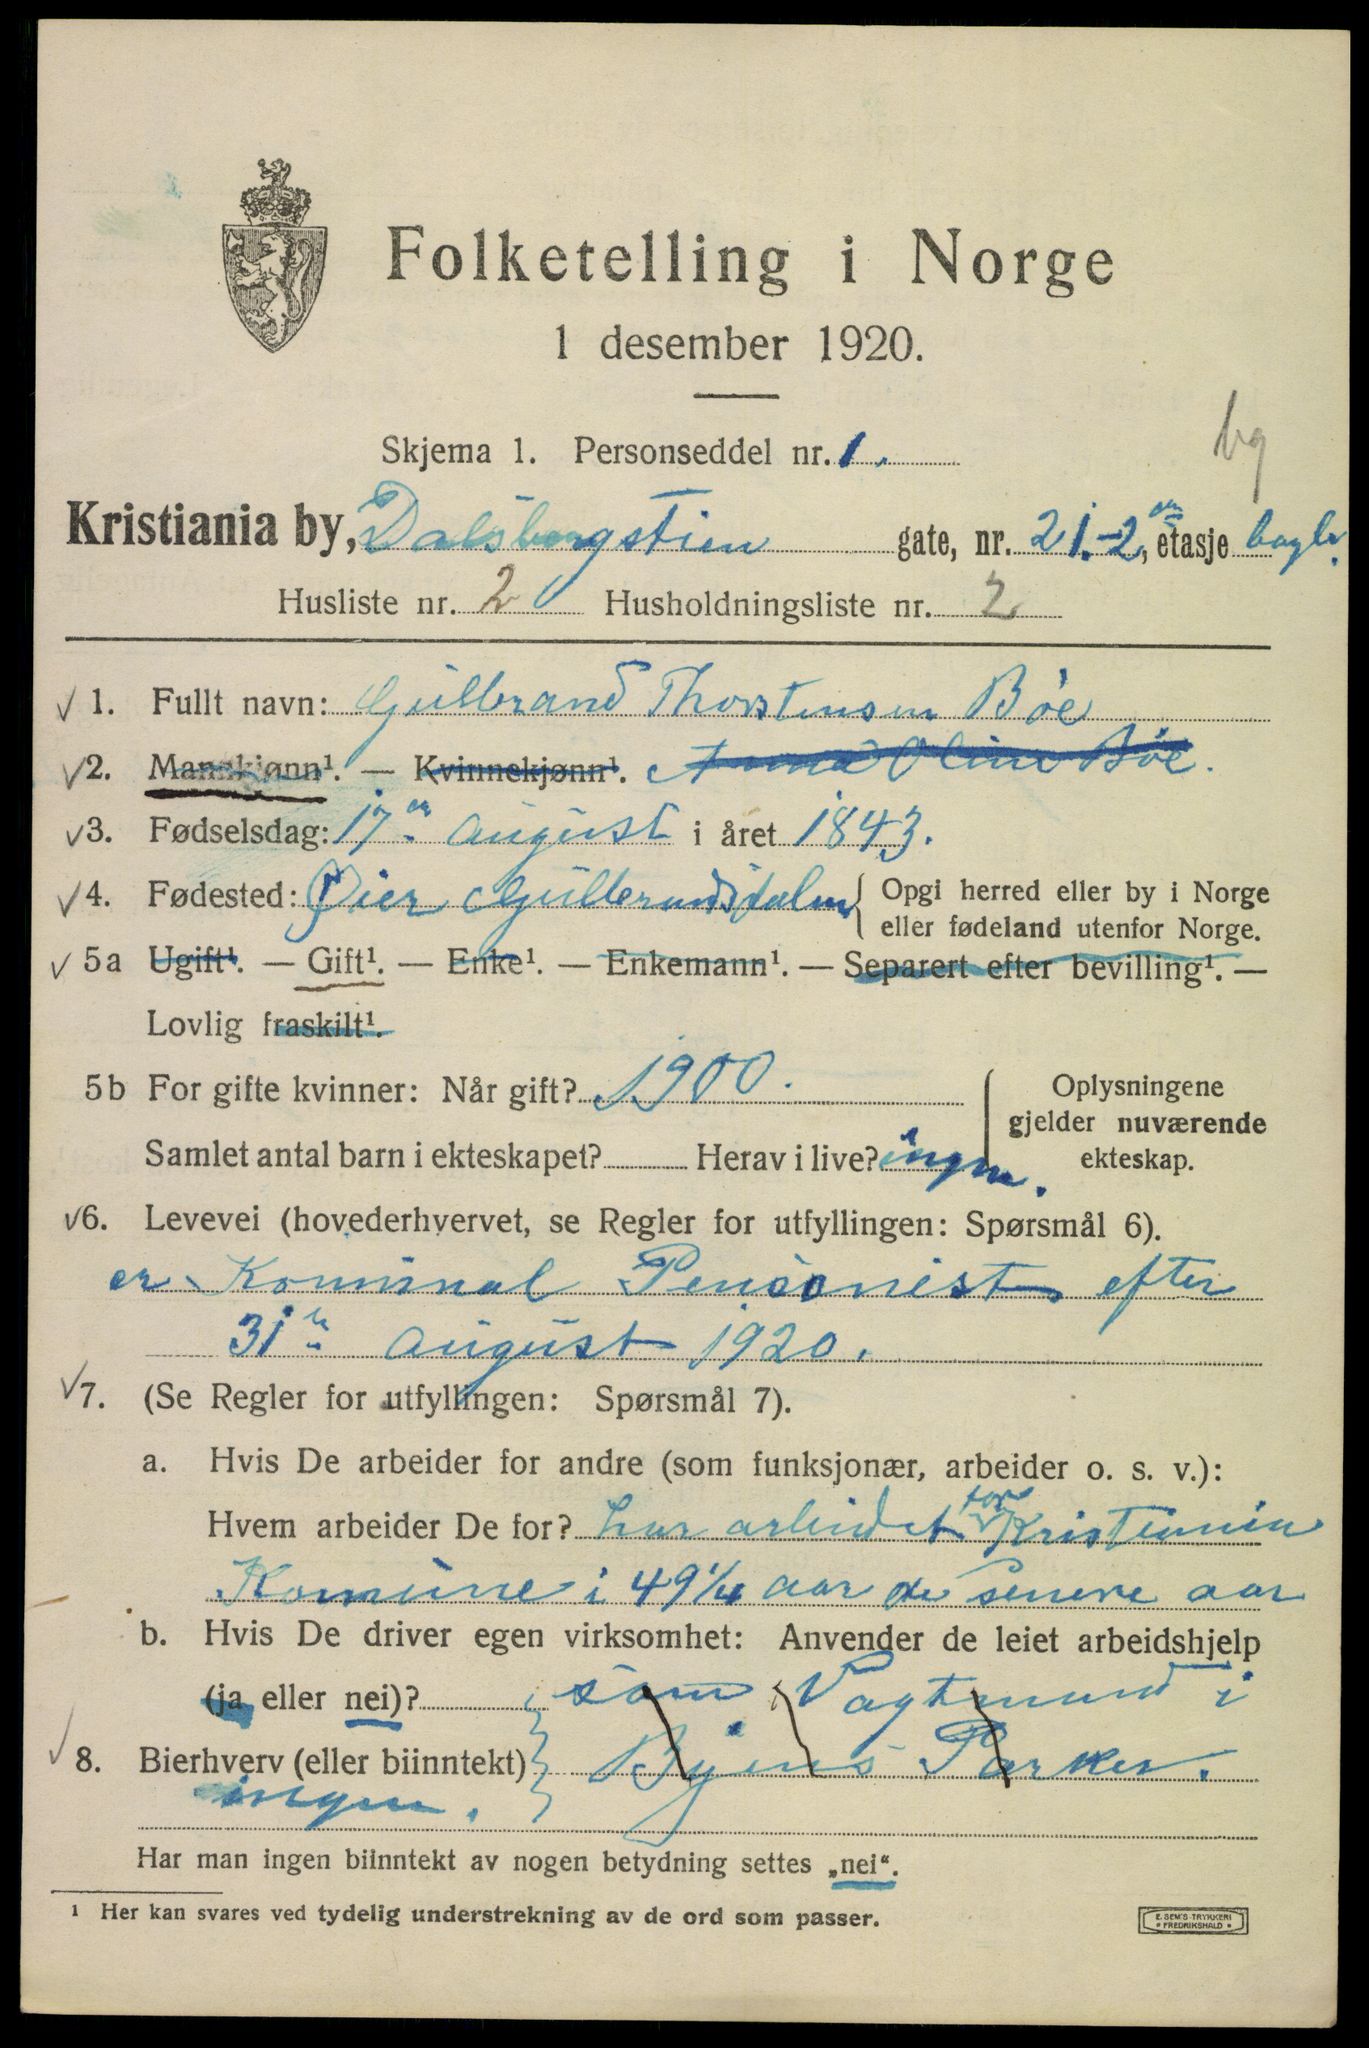 Folketelling i Norge
1 desember 1920.
bg
Skjema 1. Personseddel nr. 1.
Kristiania by, Dalsbergstien gate, nr. 21.-2 en, etasje
Husliste nr. 2 Husholdningsliste nr. 2
1. Fullt navn: Gulbrand Thorstensen Böe
2. Mannkjønn¹. — Kvinnekjønn¹. Anna Oline Böe.
3. Fødselsdag: 17 en august i året 1843.
4. Fødested: Øier Gulbrandsdalen { Opgi herred eller by i Norge
eller fødeland utenfor Norge.
5a Ugift¹. — Gift¹. — Enke¹. — Enkemann¹. — Separert efter bevilling¹. —
Lovlig fraskilt¹.
5b For gifte kvinner: Når gift? 1900. Oplysningene
gjelder nuværende
Samlet antal barn i ekteskapet? Herav i live? ingen. ekteskap.
6. Levevei (hovederhvervet, se Regler for utfyllingen: Spørsmål 6).
er Komunal Pensionist efter
31 te august 1920.
7. (Se Regler for utfyllingen: Spørsmål 7).
a. Hvis De arbeider for andre (som funksjonær, arbeider o. s. v.):
Hvem arbeider De for? har arbeidet for Kristiania
Komune i 49 1/4 aar de senere aar
b. Hvis De driver egen virksomhet: Anvender de leiet arbeidshjelp
(ja eller nei)? som Vagtmand i
8. Bierhverv (eller biinntekt) } Byens Parker.
ingen.
Har man ingen biinntekt av nogen betydning settes „nei“.
¹ Her kan svares ved tydelig understrekning av de ord som passer.
E. SEM'S TRYKKERI
* FREDRIKSHALD *